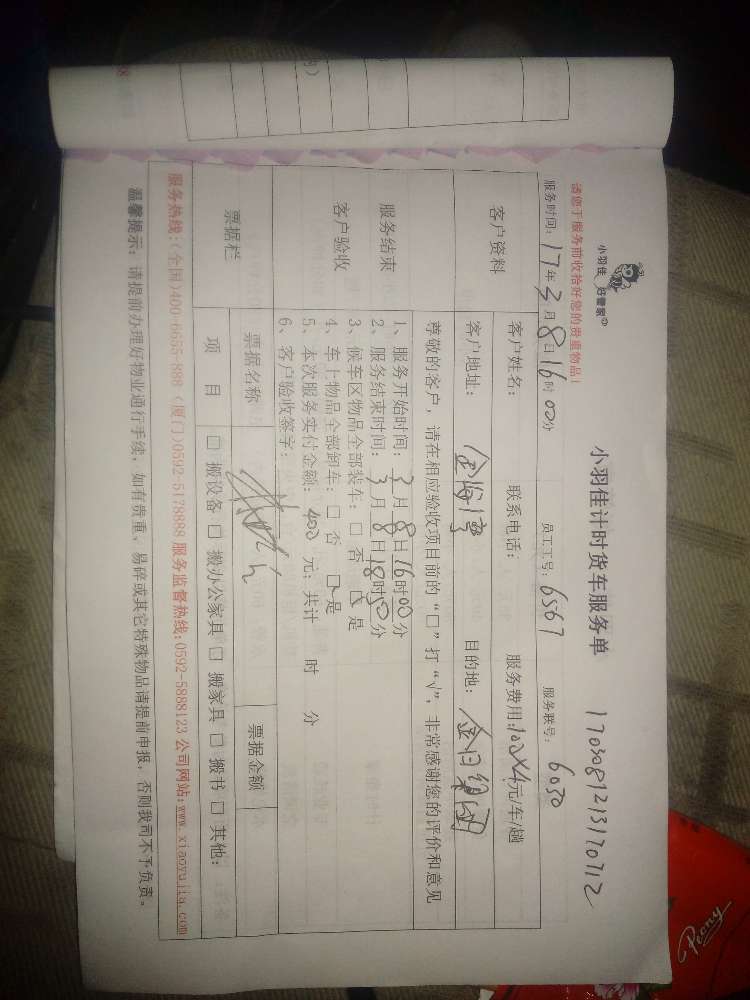 请您于服务前收拾好您的贵重物品!
小羽佳 好管家®
小羽佳计时货车服务单
170308121317071 2
服务时间: 17年3月8日16时00分 员工工号: 6567 服务联号: 6050
客户资料 客户姓名: 联系电话: 服务费用: 100X4元/车/趟
客户地址: 金海湾 目的地:
尊敬的客户,请在相应验收项目前的“□”打“√”,非常感谢您的评价和意见
服务结束
客户验收
1、服务开始时间: 3月8日16时00分
2、服务结束时间: 3月8日18时50分
3、候车区物品全部装车: □ 否 □ 是
4、车上物品全部卸车: □ 否 □ 是
5、本次服务实付金额: 400 元; 共计 时 分
6、客户验收签字:
票据栏 票据名称 票据金额
项 目 □ 搬设备 □ 搬办公家具 □ 搬家具 □ 搬书 □ 其他:
服务热线:(全国)400-6655-888 (厦门)0592-5178888 服务监督热线:0592-5888123 公司网站:www.xiaoyujia.com
温馨提示: 请提前办理好物业通行手续, 如有贵重、易碎或其它特殊物品请提前申报, 否则我司不予负责。
Peony